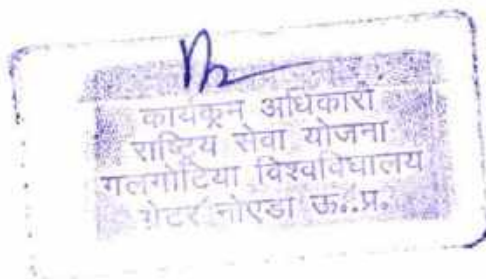 कार्यक्रन अधिकारी
राष्ट्रिय सेवा योजना
गलगोटिया विश्वविघालय
ग्रेटर नोएडा ऊ..प्र.